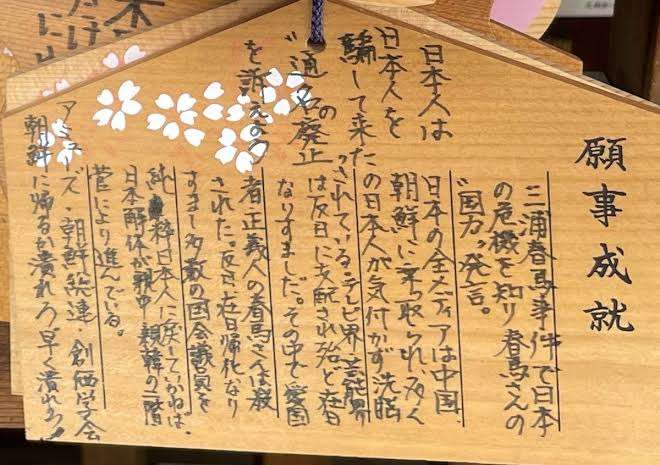 願事成就
日本人は
日本人を
騙して来た
"通名の廃止
を訴える
三浦春馬事件で日本
の危機を知り春馬さんの
"国力"発言。
日本の全メディアは中国、
朝鮮に乗っ取られ、多く
の日本人が気付かず洗脳
されている。テレビ界、芸能界
は反日に支配され殆ど在日
なりすました。その中で愛国
者正義人の春馬さんは殺
された。反日在日帰化なり
すまし多数の国会議員を
純粋日本人に戻していかねば、
日本解体が親中・親韓の二階
菅により進んでいる。
アミューズ・朝鮮総連・創価学会
朝鮮に帰るか潰れろ 早く潰れろ!